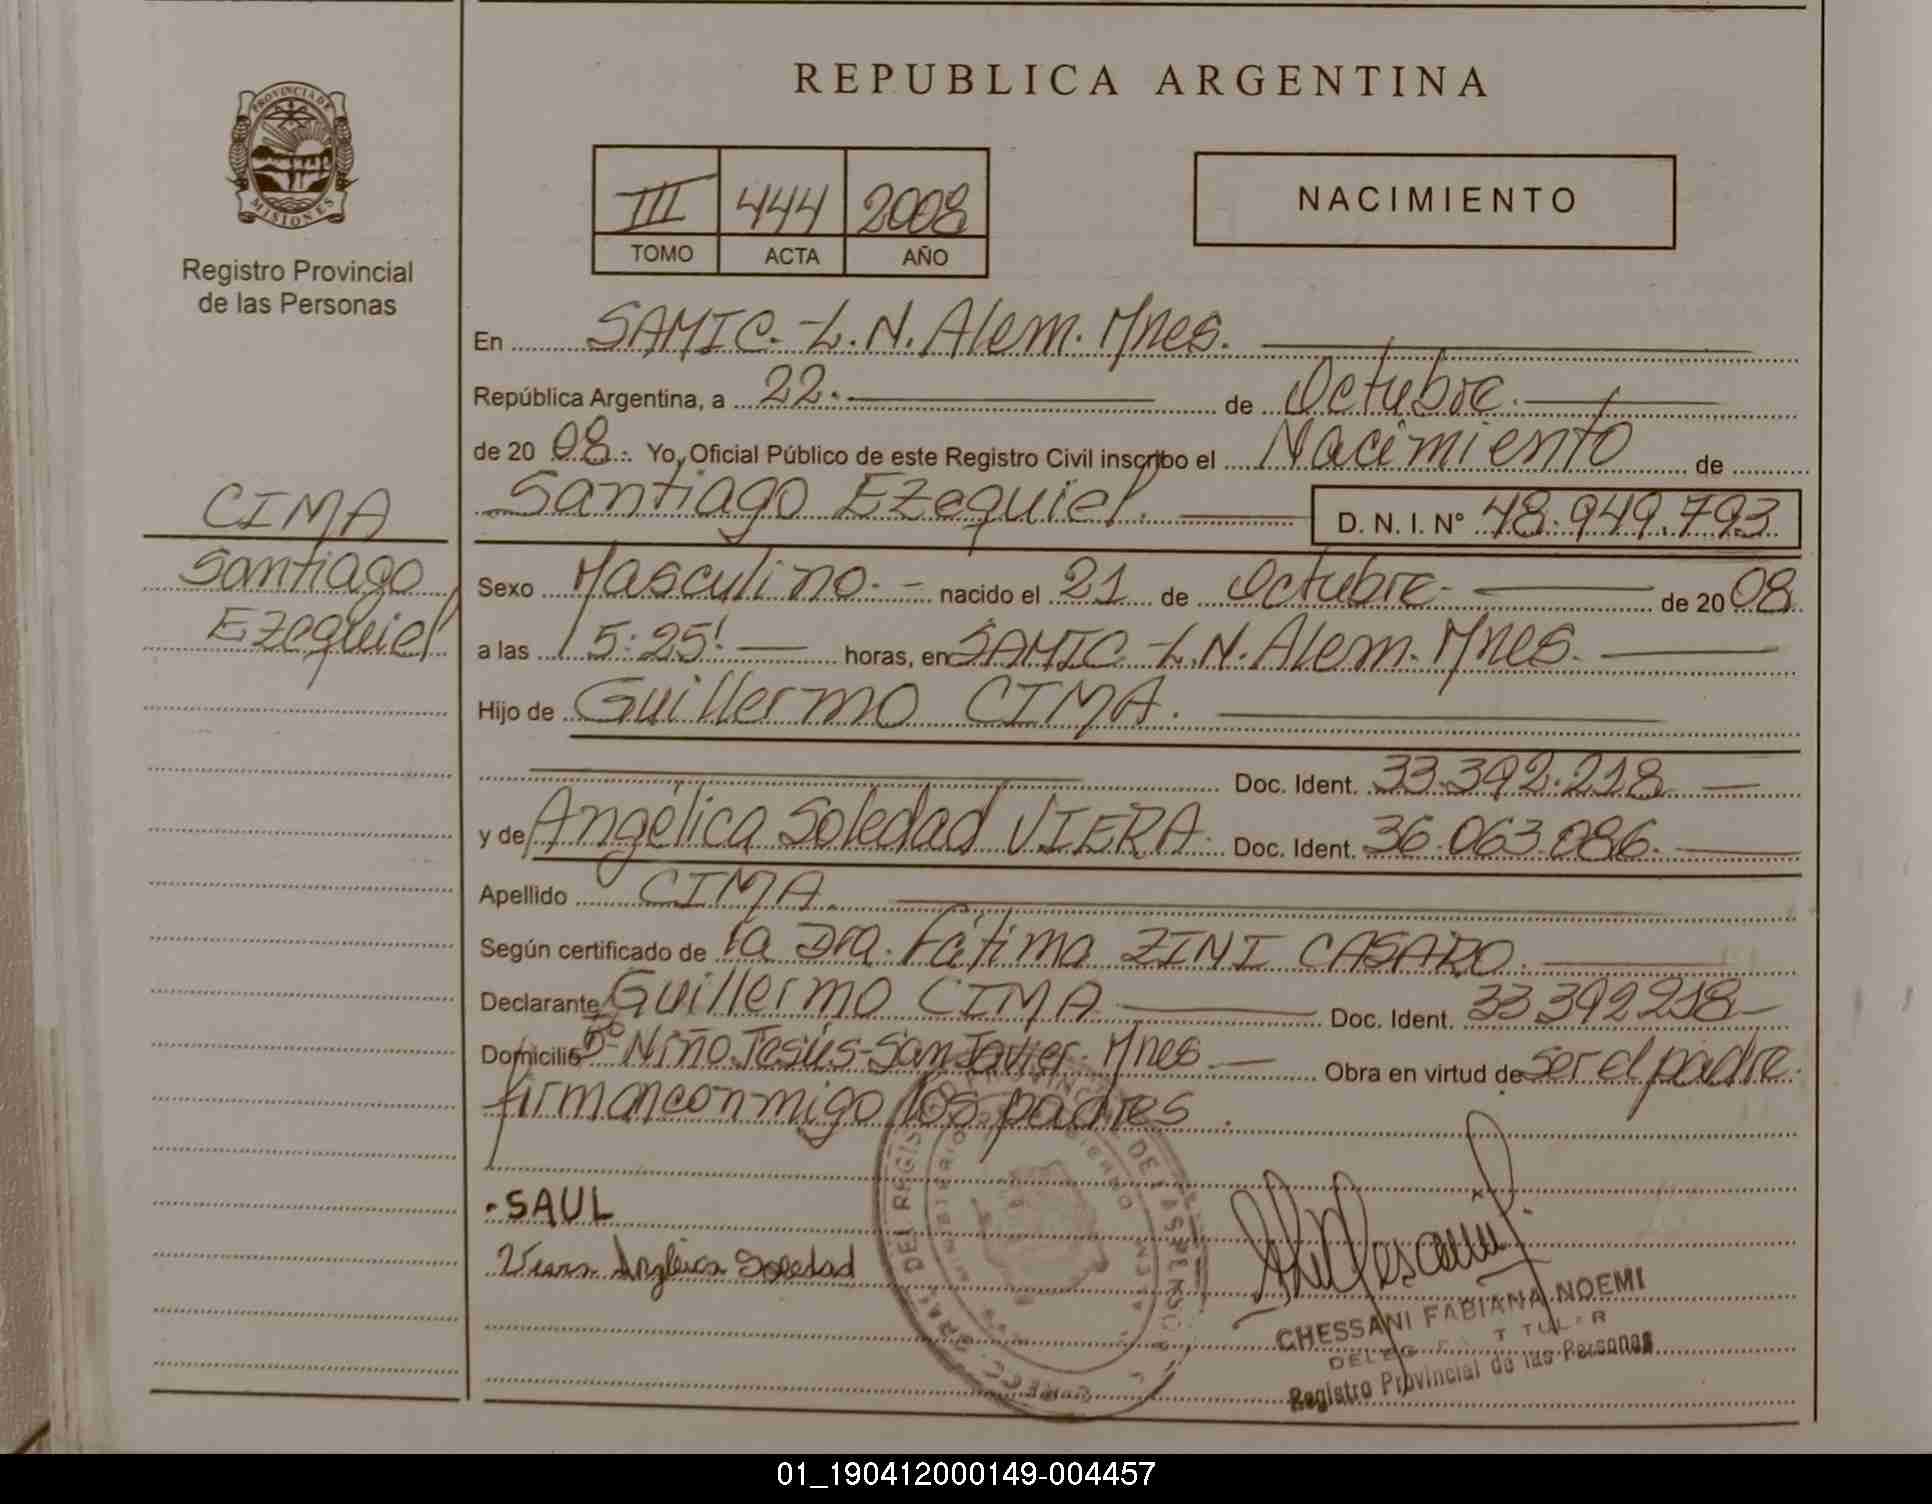 PROVINCIA DE
MISIONES
Registro Provincial
de las Personas
CIMA
Santiago
Ezequiel
REPUBLICA ARGENTINA
III 444 2008
TOMO ACTA AÑO
NACIMIENTO
En SAMIC.-L.N.Alem.Mnes.
República Argentina, a 22.- de Octubre.
de 20 08. Yo, Oficial Público de este Registro Civil inscribo el Nacimiento de
Santiago Ezequiel. D. N. I. N° 48.949.793
Sexo Masculino.- nacido el 21 de Octubre- de 20 08
a las 15:25' horas, en SAMIC. L.N.Alem. Mnes.
Hijo de Guillermo CIMA.
Doc. Ident. 33.392.218
y de Angélica Soledad VIERA. Doc. Ident. 36.063.086.
Apellido CIMA.
Según certificado de la Dra. Fátima ZINI CASARO.
Declarante Guillermo CIMA Doc. Ident. 33392218
Domicilio Bº Niño Jesús-San Javier. Mnes Obra en virtud de ser el padre.
firman conmigo los padres
SAUL
Viera Angelica Soledad
CHESSANI FABIANA NOEMI
Registro Provincial de las Personas
01_190412000149-004457